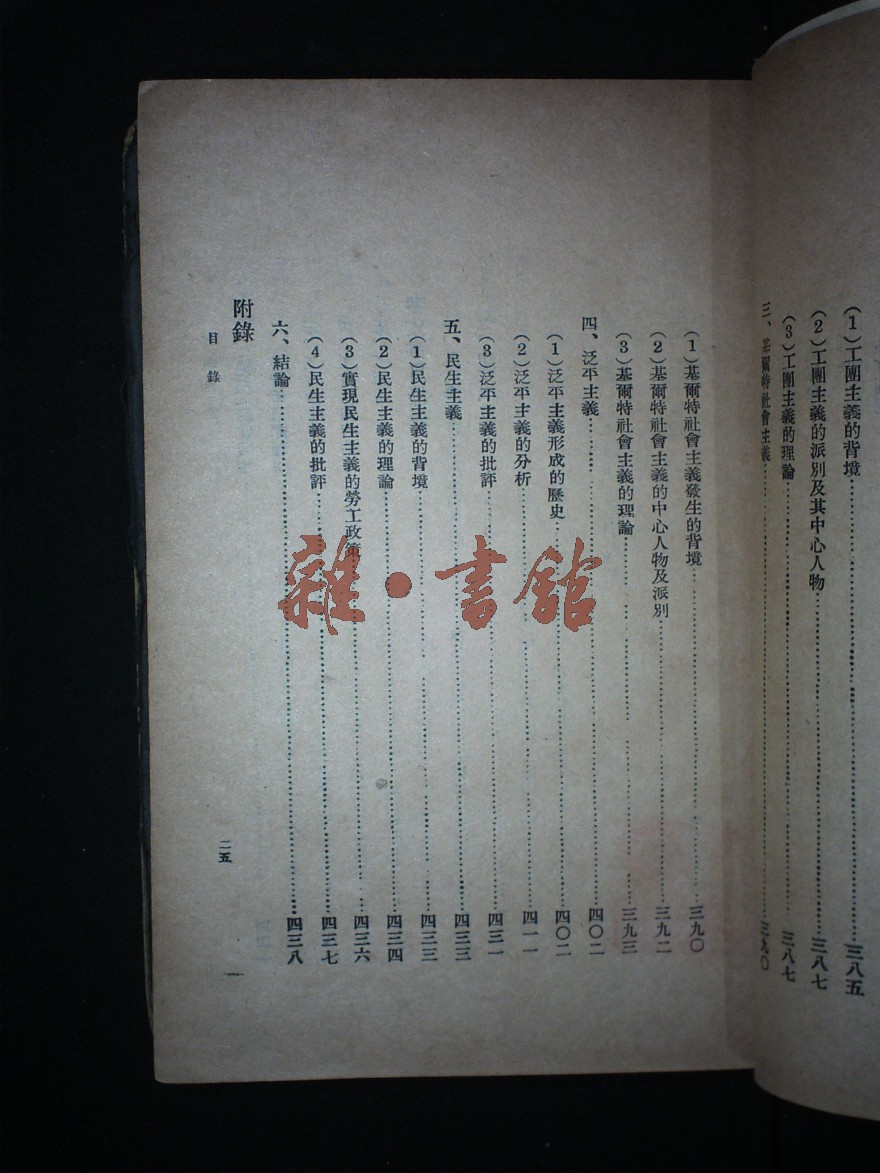 (1)工團主義的背境……三八五
(2)工團主義的派別及其中心人物……三八七
(3)工團主義的理論……三八七
三、基爾特社會主義……三九〇
(1)基爾特社會主義發生的背境……三九〇
(2)基爾特社會主義的中心人物及派別……三九二
(3)基爾特社會主義的理論……三九三
四、泛平主義……四〇二
(1)泛平主義形成的歷史……四〇二
(2)泛平主義的分析……四一一
(3)泛平主義的批評……四三一
五、民生主義……四三三
(1)民生主義的背境……四三三
(2)民生主義的理論……四三四
(3)實現民生主義的勞工政策……四三六
(4)民生主義的批評……四三七
六、結論……四三八
附錄
目錄
二五
雜·書館